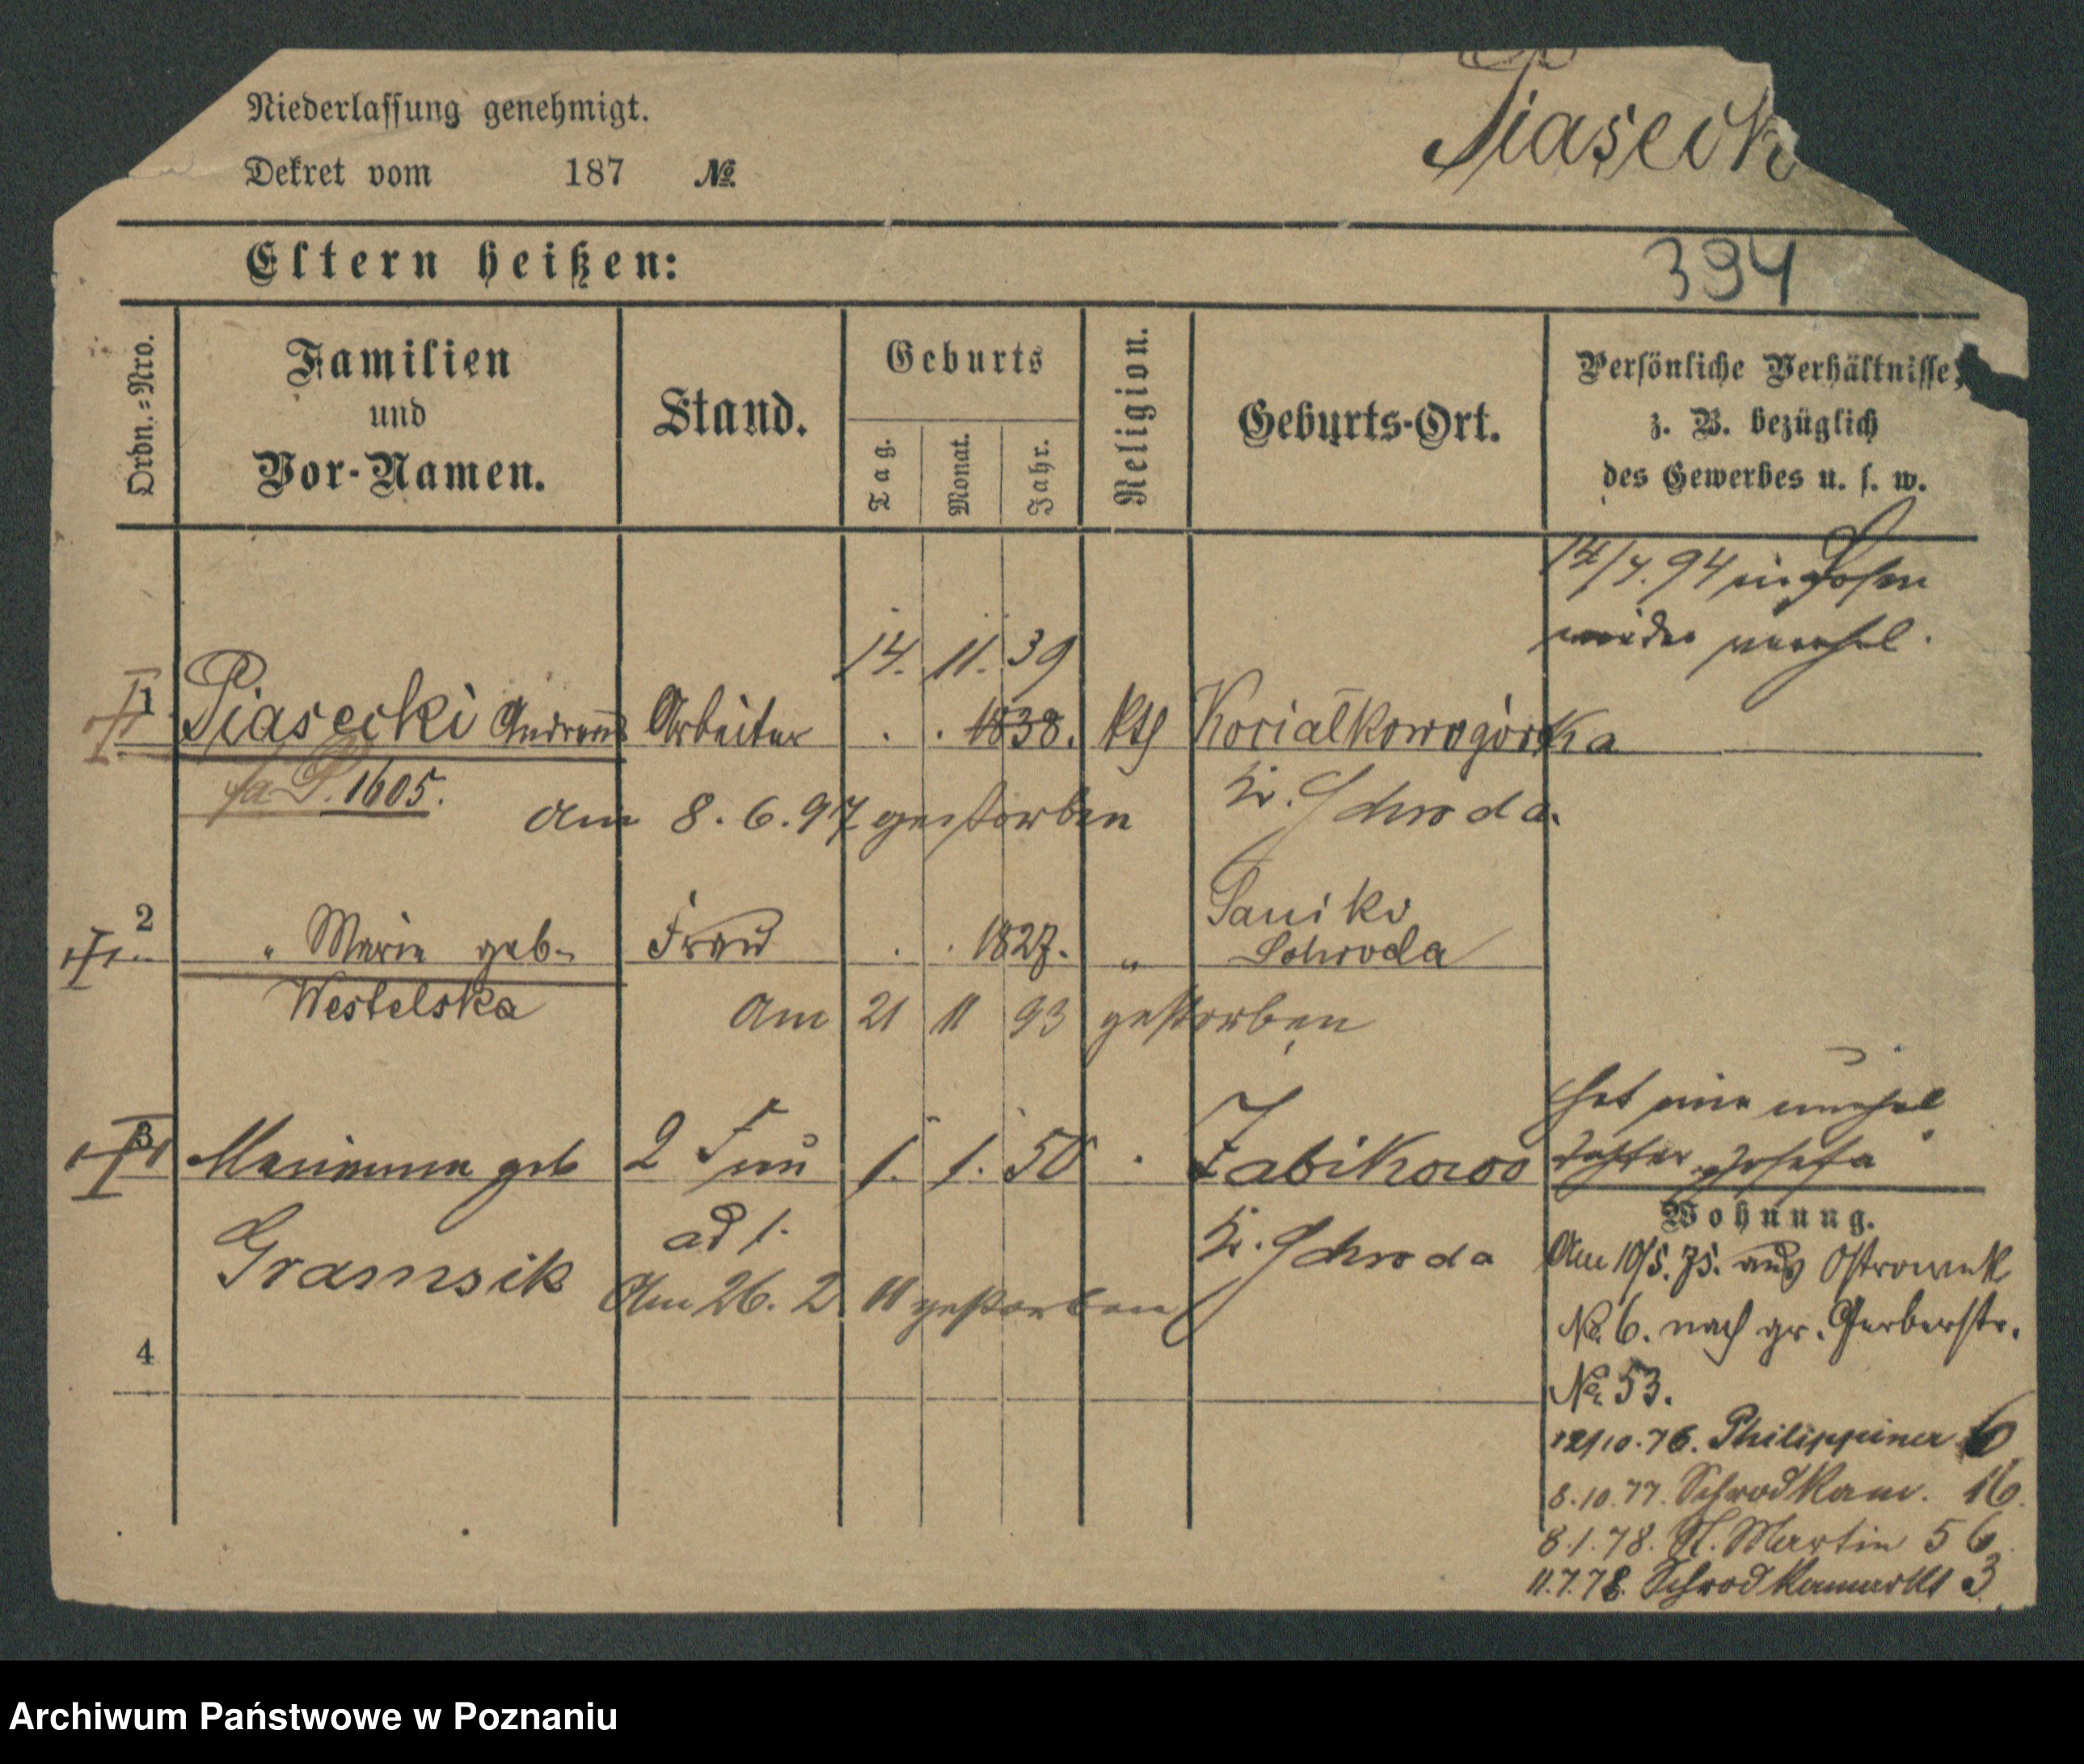 Niederlassung genehmigt.
Dekret vom 187 №
Piaseck
Eltern heißen:
394
Ordn.=Nro.
Familien
und
Vor-Namen.
Stand.
Geburts
Tag.
Monat.
Jahr.
Religion.
Geburts-Ort.
Persönliche Verhältnisse,
z. B. bezüglich
des Gewerbes u. s. w.
14/7.94 in Posen
wieder verehel.
14. 11. 39
1 Piasecki Andreas Arbeiter . . 1838. kth Kocialkowogórka
fa P. 1605.
Kr. Schroda.
am 8.6.97 gestorben
2 " Marie geb. Frau . . 1827. "
Schroda
Westelska
am 21 11 93 gestorben
hat eine unehel
Tochter Josefa
3 Marianna geb 2 Frau 1. 1. 50 . Zabikowo
ad 1.
Gramsik
Kr. Schroda
Am 26. 2. 11 gestorben
4
Wohnung.
Am 10/5.75. aus Ostrowek
№ 6. nach gr. Gerberstr.
№ 53.
12/10.76. Philippiner 6
8.10.77. Schrodkam. 16.
8.1.78. St. Martin 56.
11.7.78. Schrodkamarkt 3.
Archiwum Państwowe w Poznaniu